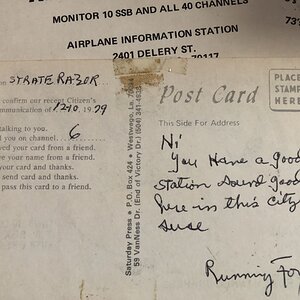 MONITOR 10 SSB AND ALL 40 CHANNELS
73'
AIRPLANE INFORMATION STATION
2401 DELERY ST.
70117
on STRATE RAZOR
confirm our recent Citizen's
mmunication of 1240 1979
talking to you.
d you on channel 6
ved your card from a friend.
ve your name from a friend.
your card and thanks.
send card and thanks.
pass this card to a friend.
Saturday Press • P.O. Box 424 • Westwego, La. 70
59 VanNess Dr. (End of Victory Dr.) (504) 341-4932
Post Card
This Side For Address
PLACE
STAMP
HERE
Hi
you Have a good
station sound good
here in this city
Running For